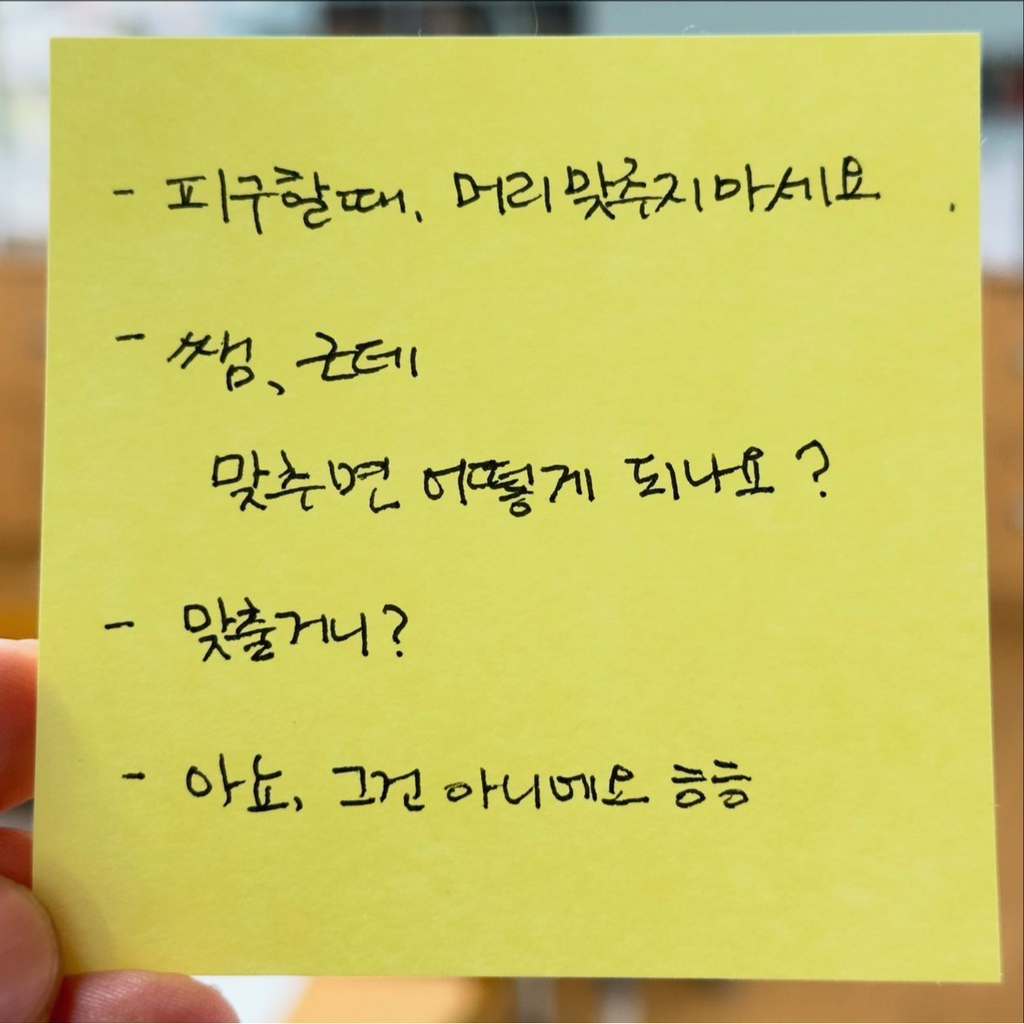 - 피구할때, 머리맞추지마세요.
- 쌤, 근데
맞추면 어떻게 되나요?
- 맞출거니?
- 아뇨, 그건 아니에요 흥흥